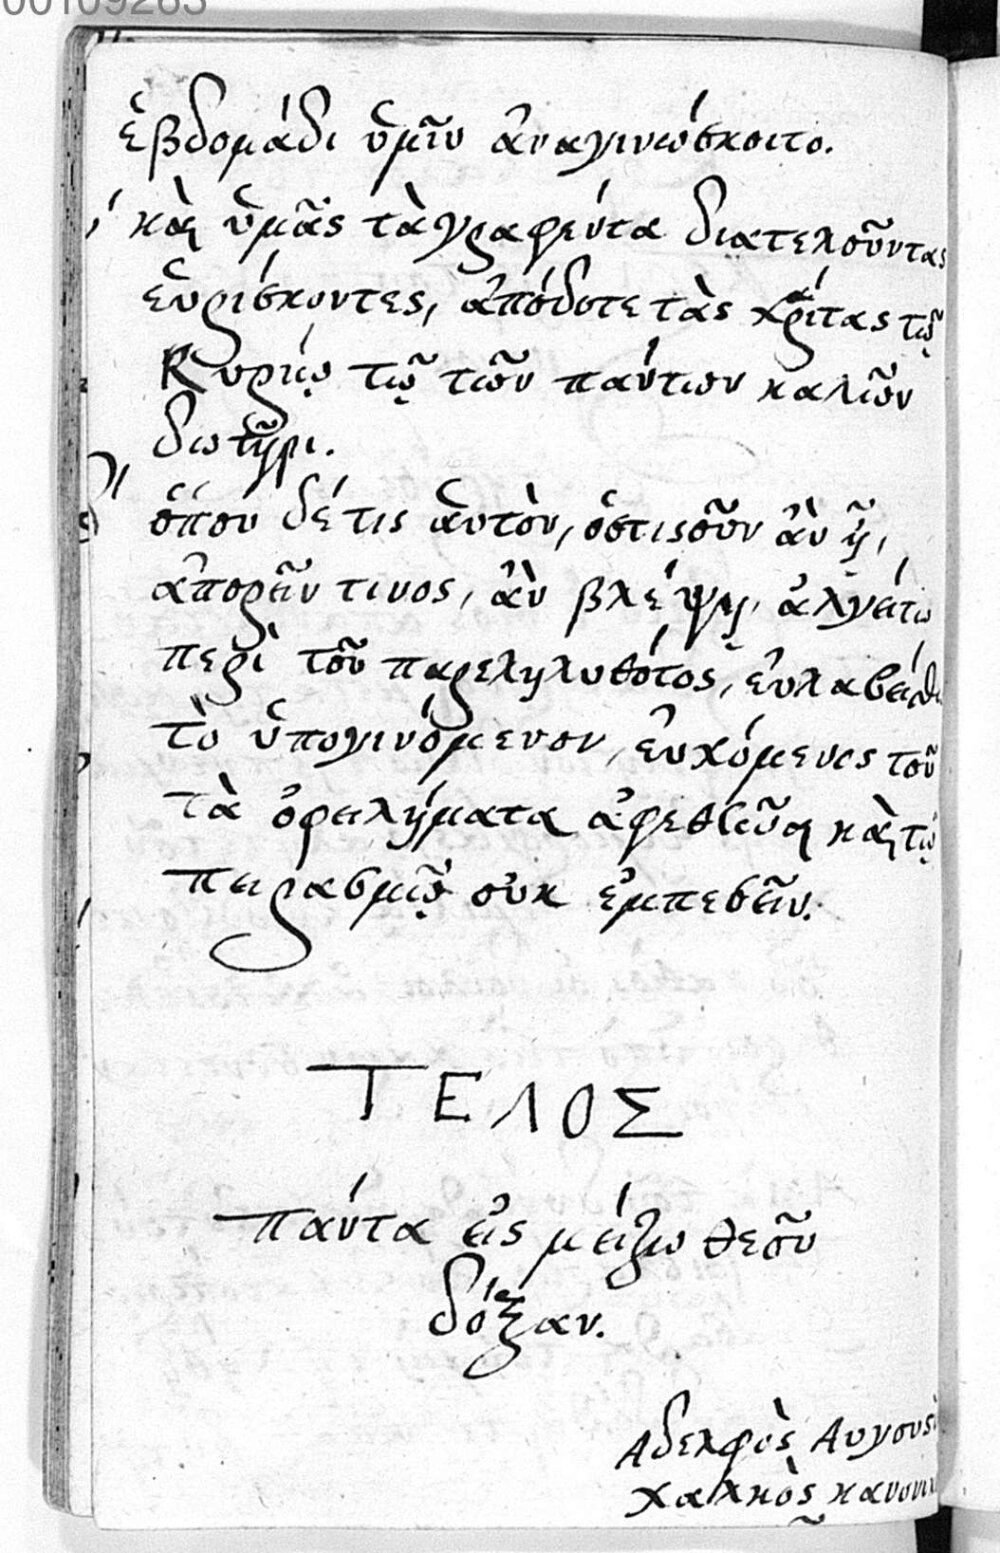 00109283
ἑβδομάδι ὑμῖν ἀναγινώσκοιτο.
καὶ ὑμᾶς τὰ γραφέντα διατελοῦντας
εὑρίσκοντες, ἀπόδοτε τὰς χάριτας τῷ
Κυρίῳ τῷ τῶν πάντων καλῶν
δωτῆρι.
ὅπου δέ τις αὐτὸν, ὁστισοῦν ἂν ᾖ,
ἀπορεῖν τινος, ἂν βλέψῃ, ἀλγείτω
περὶ τοῦ παρεληλυθότος, εὐλαβείσθω
τὸ ὑπογινόμενον, εὐχόμενος τοῦ
τὰ ὀφειλήματα ἀφεθεῖναι καὶ τῷ
πειρασμῷ οὐκ ἐμπεσεῖν.
ΤΕΛΟΣ
πάντα εἰς μείζω θεοῦ
δόξαν.
Αδελφὸς
χαλκὸς